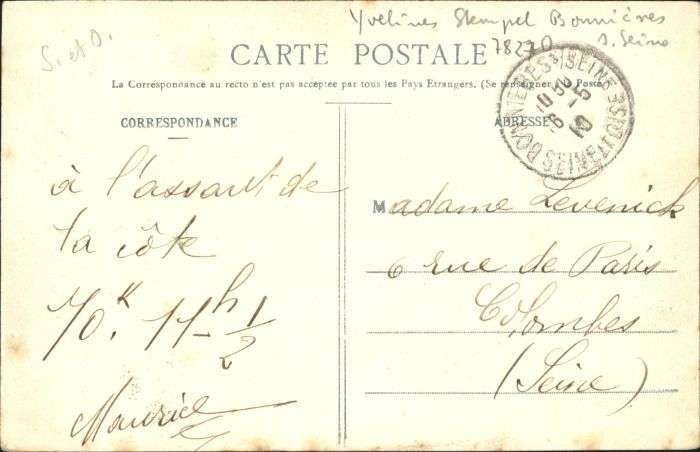 S. et O.
Yvelines Stempel Bonnières
78270 s. Seine
CARTE POSTALE
La Correspondance au recto n'est pas acceptée par tous les Pays Etrangers. (Se renseigner à la Poste)
CORRESPONDANCE
ADRESSE
BONNIERES S/ SEINE
SEINE ET OISE
5-5
10
à l'assaut de
la côte
70K. 11h 1/2
Maurice
Madame Levenick
6 rue de Paris
Colombes
(Seine)